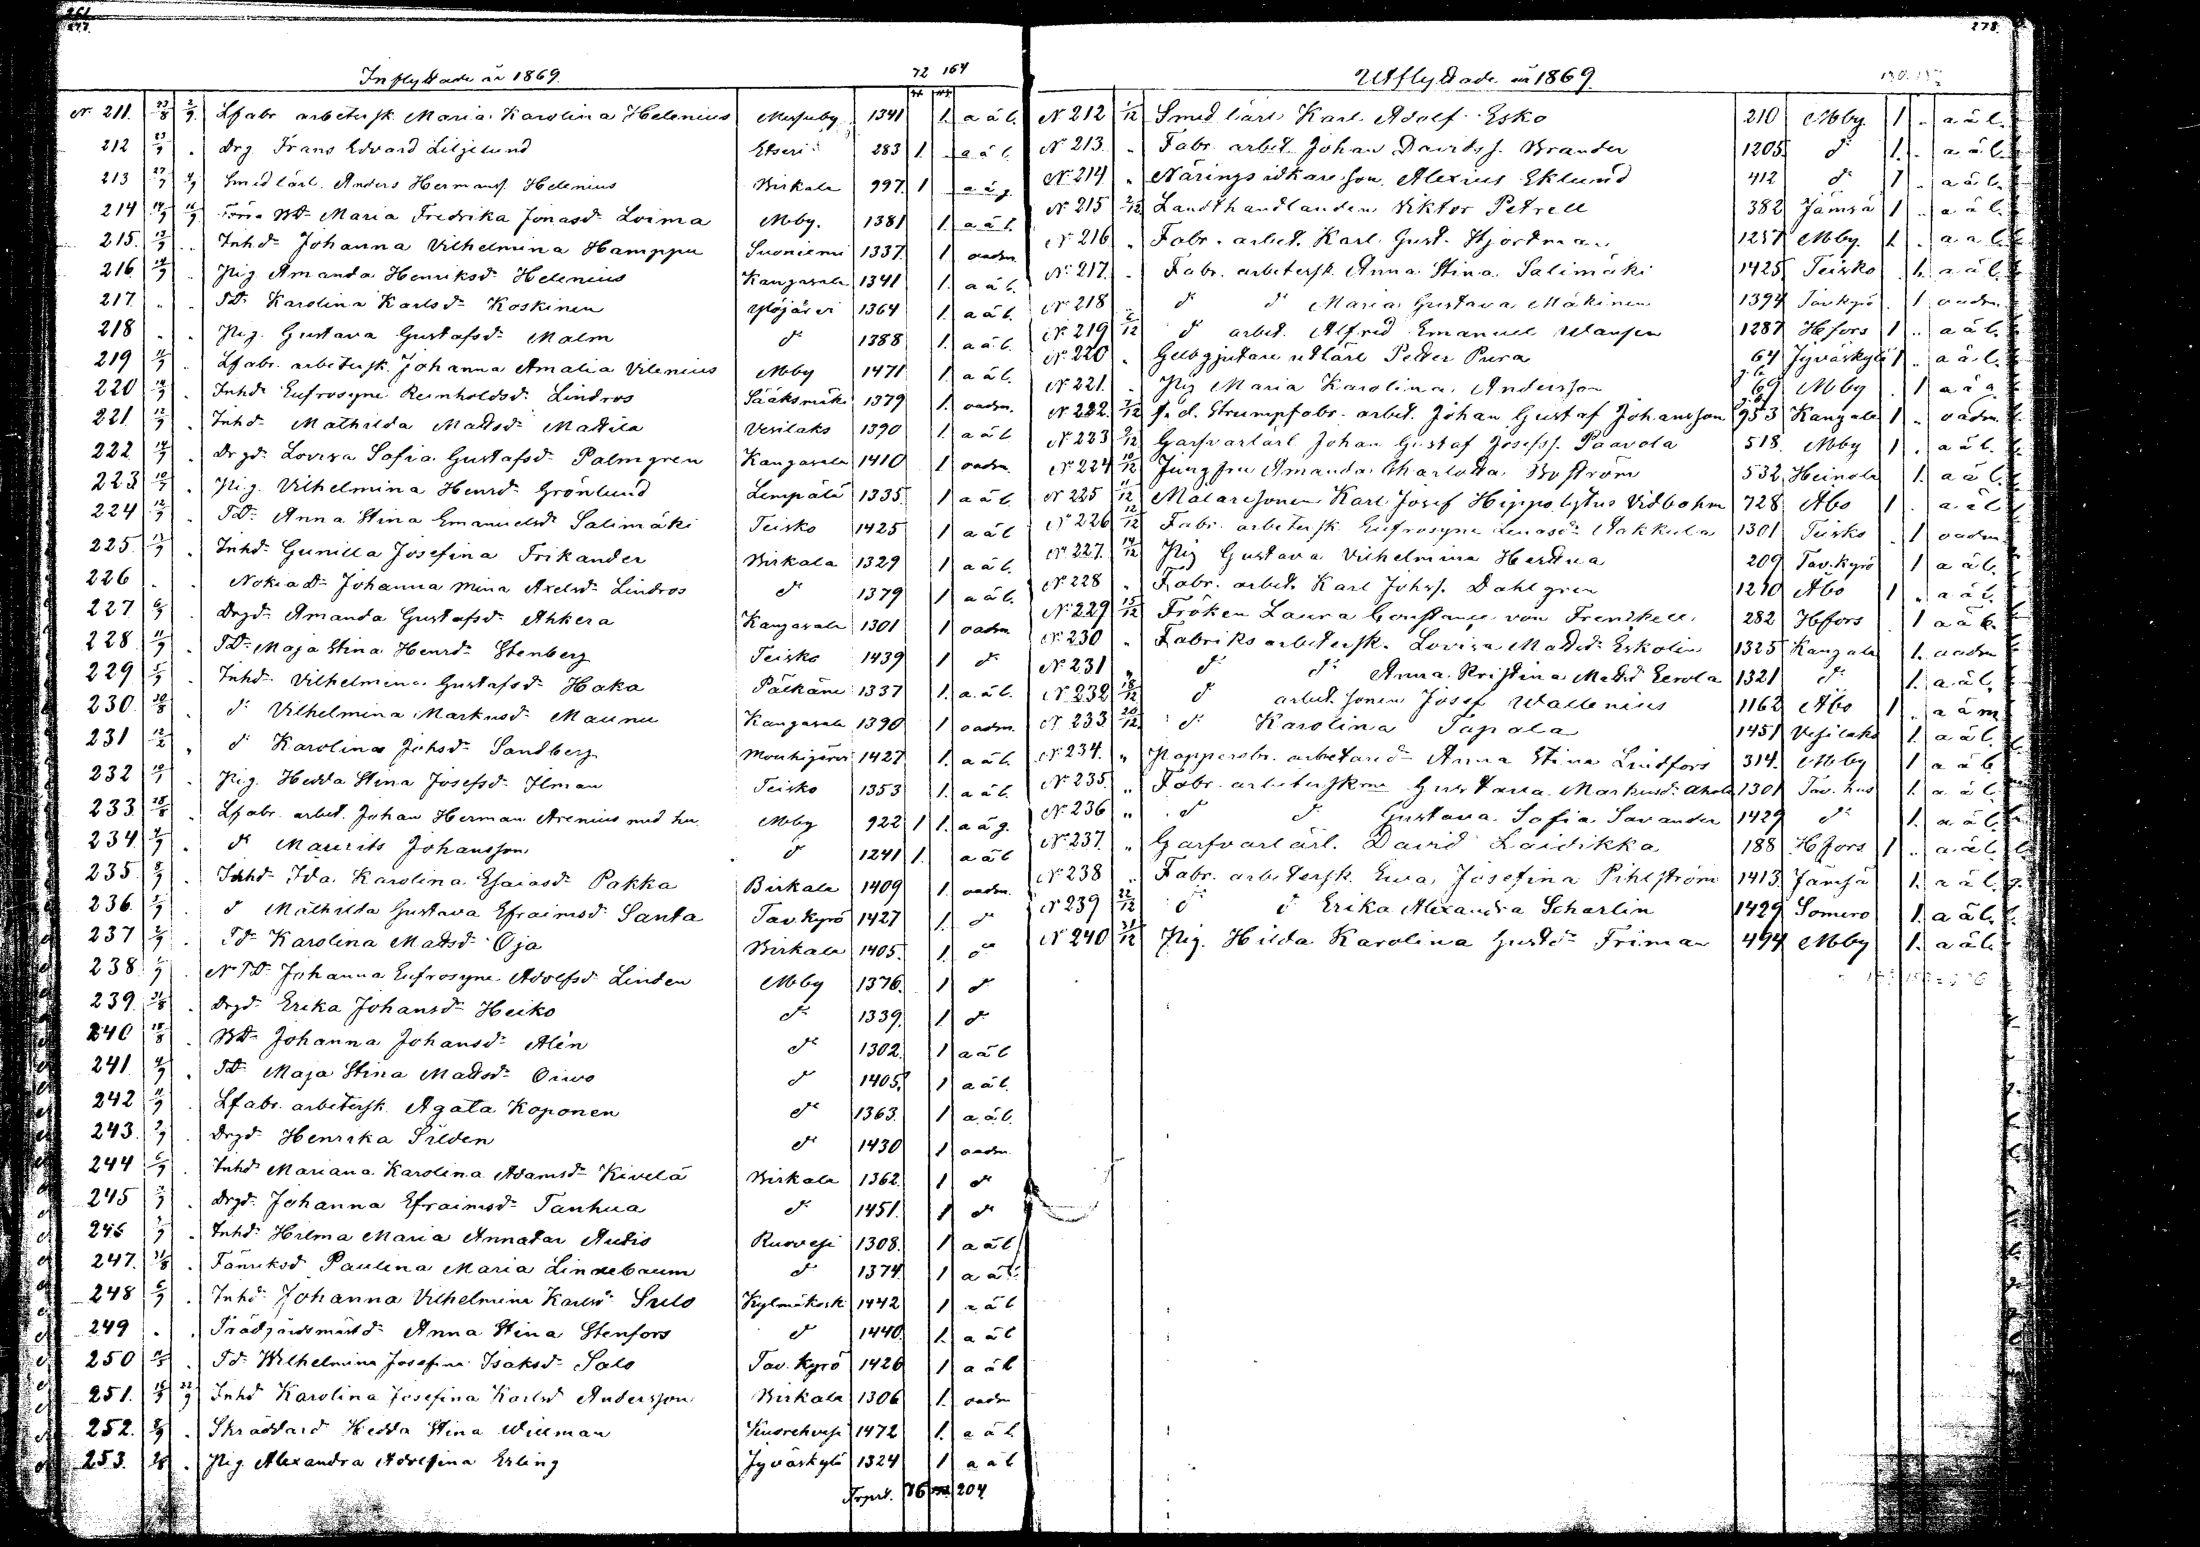 277.
Inflyttade år 1869.
72 164
Nr. 211. 23/8 2/9. Lfabr. arbetersk. Maria Karolina Helenius Messuby 1341 1. a ä l.
212 23/9 . Drg. Frans Edvard Liljelund Etseri 283 1. a ä l.
213 Smedlärl. Anders Hermanss. Helenius Birkala 997. 1 a ä g.
214 Maria Fredrika Jonasd. Loima Mby. 1381 1. a ä l.
215. Inhd. Johanna Vilhelmina Hamppu Suoniemi 1337. 1 oadm.
216 Pig. Amanda Henriksd. Helenius Kangasala 1341 1. a ä l.
217 . . Td. Karolina Karlsd. Koskinen Ylöjärvi 1364 1. a ä l.
218 . . Pig. Gustava Gustafsd. Malm d:o 1388 1. a ä l.
219 Lfabr. arbetersk. Johanna Amalia Vilenius Mby 1471 1 a ä l.
220 Inhd. Eufrosyne Reinholdsd. Lindros Sääksmäki 1379 1. oadm.
221. Inhd. Mathilda Mattsd. Mattila Vesilaks 1390 1. a ä l
222 Drgd. Lovisa Sofia Gustafsd. Palmgren Kangasala 1410 1 oadm.
223 Pig. Vilhelmina Henrd. Grönlund Lempälä 1335. 1 a ä l.
224 Td. Anna Stina Emanuelsd. Salimäki Teisko 1425 1 a ä l
225. Inhd. Gunilla Josefina Frikander Birkala 1329 1 a ä l.
226 . . Nokiad. Johanna Mina Axelsd. Lindros d:o 1379 1 a ä l.
227 Drgd. Amanda Gustafsd. Ahkera Kangasala 1301 1 oadm
228 Td. Maja Stina Henrd. Stenberg Teisko 1439 1 d:o
229 Inhd. Vilhelmina Gustafsd. Haka Pälkäne 1337 1. a ä l.
230. d:o Vilhelmina Markusd. Maunu Kangasala 1390 1 oadm.
231 d:o Karolina Johsd. Sandberg Mouhijärvi 1427 1. a ä l.
232 Pig. Hedda Stina Josefsd. Ilman Teisko 1353 1. a ä l.
233. Lfabr. arbet. Johan Herman Arenius med hu. Mby 922 1 1. a ä g.
234. d:o Maurits Johansson d:o 1241 1. a ä l
235. Inhd. Ida Karolina Esaiasd. Pakka Birkala 1409 1. oadm.
236. d:o Mathilda Gustava Efraimsd. Santa Tav. Kyrö 1427 1. d:o
237 Td. Karolina Mattsd. Oja Birkala 1405. 1. d:o
238. N Td. Johanna Eufrosyne Adolfsd. Linden Mby 1376. 1 d:o
239. Drgd. Erika Johansd. Heiko d:o 1339. 1. d:o
240 Bd. Johanna Johansd. Alén d:o 1302. 1 a ä l
241 Td. Maja Stina Mattsd. Oiwo d:o 1405. 1 a ä l.
242 Lfabr. arbetersk. Agata Koponen d:o 1363. 1 a ä l.
243. Drgd. Henrika Silden d:o 1430 1 oadm.
244 Inhd. Mariana Karolina Adamsd. Kivelä Birkala 1362. 1 d:o
245 Drgd. Johanna Efraimsd. Tanhua d:o 1451. 1 d:o
246 Inhd. Hilma Maria Annadar Audio Ruovesi 1308. 1 a ä l
247. Fänriksd. Paulina Maria Lindebaum d:o 1374. 1 a ä l.
248 Inhd. Johanna Vilhelmina Karlsd. Sulo Kylmäkosk 1442 1 a ä l
249 . . Trädgårdsmästd. Anna Stina Stenfors d:o 1440. 1. a ä l
250 Td. Wilhelmina Josefina Isaksd. Salo Tav. Kyrö 1426 1 a ä l
251. Inhd. Karolina Josefina Karlsd. Andersson Birkala 1306 1. oadm
252. Skräddard. Hedda Stina Willman Keuorehvesi 1472 1. a ä l
253. Pig. Alexandra Adolfina Erling Jyväskylä 1324 1 a ä l
Trspt. 76 204
278.
Utflyttade år 1869.
Nr 212 1/12 Smed lärl. Karl Adolf Esko 210 Mby. 1 . a ä l.
Nr 213. " Fabr. arbet. Johan Davidss. Brander 1205. d:o 1. . a ä l.
Nr 214 " Näringsidkare son. Alexius Eklund 412 d:o 1 . a ä l.
Nr 215 2/12 Landthandlanden Viktor Petrell 382 Jämsä 1 . a ä l.
Nr 216 " Fabr. arbet. Karl Gust. Hjortman 1257 Mby. 1. . a ä l.
Nr 217. . Fabr. arbetersk. Anna Stina Salimäki 1425 Teisko . 1. a ä l.
Nr 218 d:o d:o Maria Gustava Mäkinen 1394 Tavkyrö . 1 oadm.
Nr 219 d:o arbet. Alfred Emanuel Wansen 1287 Hfors 1 . a ä l.
Nr 220 . Gelbgjutare utlärl. Petter Pura 64 Jyväskylä 1 . a ä l.
Nr 221. . Pig Maria Karolina Andersson 69 Mby . 1 a ä g.
Nr 222. f. d. Strumpfabr. arbet. Johan Gustaf Johansson 953 Kangala 1 . oadm.
Nr 223 9/12 Garfvarlärl. Johan Gustaf Josefss. Paavola 518. Mby 1 . a ä l.
Nr 224 10/12 Jungfru Amanda Charlotta Boström 532. Heinola 1. a ä l.
Nr 225 11/12 Målaresonen Karl Josef Hippolytus Vidbohm 728 Åbo 1 . a ä l
Nr 226 12/12 Fabr. arbetersk. Eufrosyne Aakkula 1301 Teisko . 1 oadm.
Nr 227. 14/12 Pig Gustava Vilhelmina Herttua 209 Tav.kyrö 1 a ä l.
Nr 228 " Fabr. arbet. Karl Johss. Dahlgren 1210 Åbo 1 . a ä l.
Nr 229 15/12 Fröken Laura Constance von Frenckell 282 Hfors 1 a ä l.
Nr 230 " Fabriks arbetersk. Lovisa Mattsd. Eskolin 1325 Kangala 1. oadm
Nr 231 " d:o d:o Anna Kristina Mattsd. Eerola 1321 d:o 1. a ä l.
Nr 232 18/12 d:o arbet. sonen Josef Wallenius 1162 Åbo 1 . a ä m
Nr 233 20/12 d:o Karolina Tapola 1451 Vesilaks 1. a ä l.
Nr 234. " Pappersbr. arbetared. Anna Stina Lindfors 314. Mby 1 a ä l.
Nr 235. " Fabr. arbeterskan Gustava Markusd. Ahola 1301 Tav. hus 1. a ä l.
Nr 236 " d:o d:o Gustava Sofia Savander 1429 d:o 1. a ä l.
Nr 237. " Garfvarlärl. David Laidikka 188 Hfors 1 . a ä l.
Nr 238 " Fabr. arbetersk. Ewa Josefina Pihlström 1413 Jämsä 1. a ä l.
Nr 239 22/12 d:o d:o Erika Alexandra Scharlin 1429 Somero 1. a ä l.
Nr 240 31/12 Pig. Hilda Karolina Gustd. Friman 494 Mby 1. a ä l.